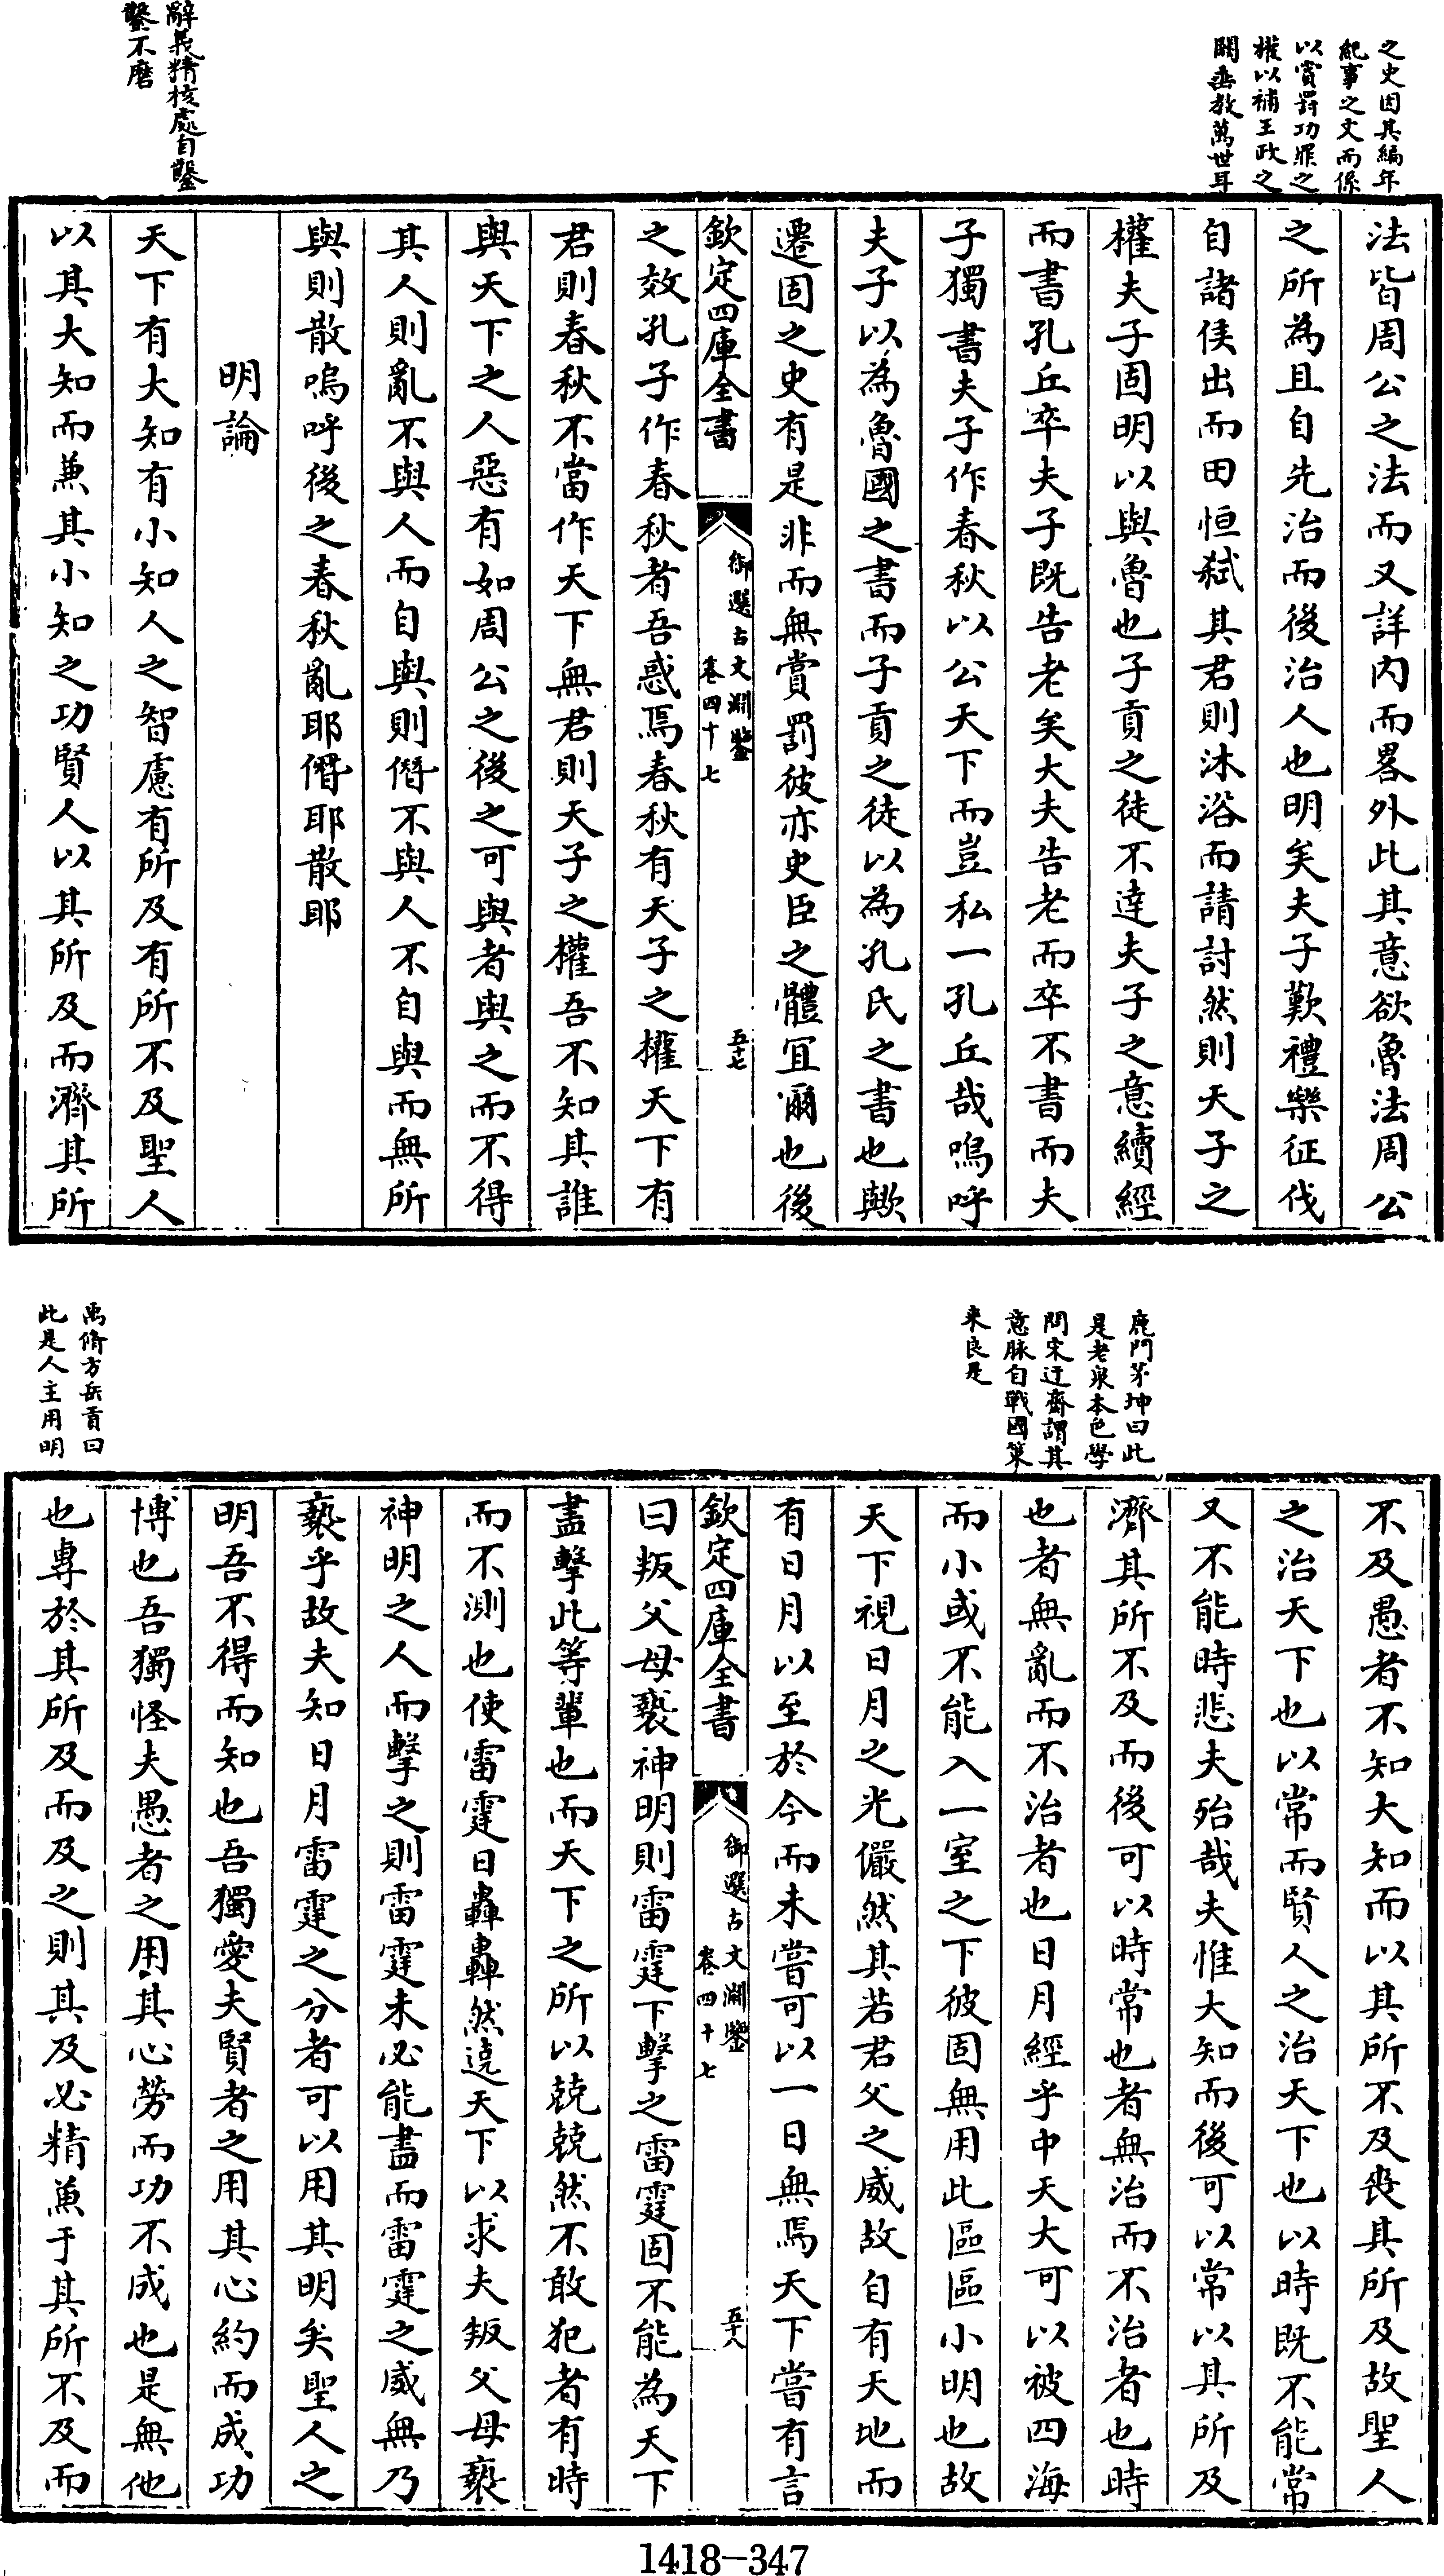 之史因其編年
紀事之文而係
以賞罰功罪之
權以補王政之
闕垂教萬世耳
法皆周公之法而又詳内而畧外此其意欲魯法周公
之所為且自先治而後治人也明矣夫子歎禮樂征伐
自諸侯出而田恒弑其君則沐浴而請討然則天子之
權夫子固明以與魯也子貢之徒不達夫子之意續經
而書孔丘卒夫子既告老矣大夫告老而卒不書而夫
子獨書夫子作春秋以公天下而豈私一孔丘哉嗚呼
夫子以為魯國之書而子貢之徒以為孔氏之書也歟
遷固之史有是非而無賞罰彼亦史臣之體宜爾也後
欽定四庫全書
御選古文淵鑒
卷四十七
五十七
之效孔子作春秋者吾惑焉春秋有天子之權天下有
君則春秋不當作天下無君則天子之權吾不知其誰
與天下之人惡有如周公之後之可與者與之而不得
其人則亂不與人而自與則僭不與人不自與而無所
與則散嗚呼後之春秋亂耶僭耶散耶
明論
辭義精核處自鑿
鑿不磨
天下有大知有小知人之智慮有所及有所不及聖人
以其大知而兼其小知之功賢人以其所及而濟其所
鹿門茅坤曰此
是老泉本色學
問宋迂齋謂其
意脉自戰國策
来良是
不及愚者不知大知而以其所不及喪其所及故聖人
之治天下也以常而賢人之治天下也以時既不能常
又不能時悲夫殆哉夫惟大知而後可以常以其所及
濟其所不及而後可以時常也者無治而不治者也時
也者無亂而不治者也日月經乎中天大可以被四海
而小或不能入一室之下彼固無用此區區小明也故
天下視日月之光儼然其若君父之威故自有天地而
有日月以至於今而未嘗可以一日無焉天下嘗有言
欽定四庫全書
御選古文淵鑒
卷四十七
五十八
曰叛父母褻神明則雷霆下擊之雷霆固不能為天下
盡擊此等輩也而天下之所以兢兢然不敢犯者有時
而不測也使雷霆日轟轟然遶天下以求夫叛父母褻
神明之人而擊之則雷霆未必能盡而雷霆之威無乃
褻乎故夫知日月雷霆之分者可以用其明矣聖人之
明吾不得而知也吾獨愛夫賢者之用其心約而成功
博也吾獨怪夫愚者之用其心勞而功不成也是無他
也專於其所及而及之則其及必精兼于其所不及而
禹脩方岳貢曰
此是人主用明
1418-347